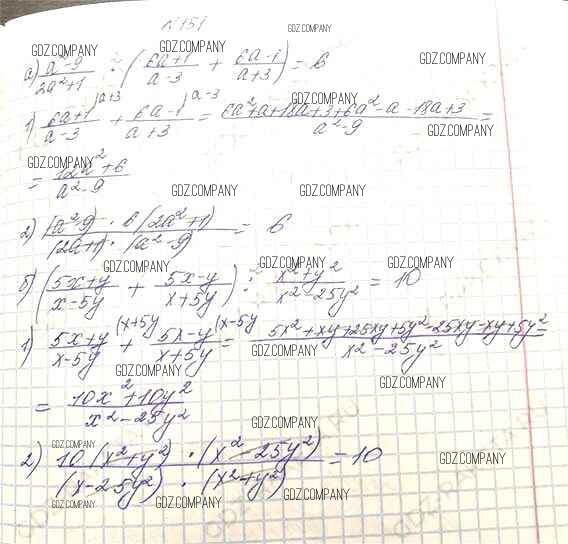 № 151
GDZ.COMPANY
GDZ.COMPANY GDZ.COMPANY GDZ.COMPANY
а) (a²-9)/(2a²+1) · ((6a+1)/(a-3) + (6a-1)/(a+3)) = 6
GDZ.COMPANY
1) (6a+1)/(a-3) |a+3 + (6a-1)/(a+3) |a-3 = (6a²+a+18a+3+6a²-a-18a+3)/(a²-9) =
GDZ.COMPANY
GDZ.COMPANY
= (12a²+6)/(a²-9)
GDZ.COMPANY GDZ.COMPANY
2) ((a²-9) · 6(2a²+1))/((2a+1) · (a²-9)) = 6
GDZ.COMPANY GDZ.COMPANY GDZ.COMPANY
б) ((5x+y)/(x-5y) + (5x-y)/(x+5y)) : (x²+y²)/(x²-25y²) = 10
1) (5x+y)/(x-5y) (x+5y + (5x-y)/(x+5y) (x-5y = (5x²+xy+25xy+5y²-25xy-xy+5y²)/(x²-25y²) =
GDZ.COMPANY
GDZ.COMPANY GDZ.COMPANY
= (10x²+10y²)/(x²-25y²)
GDZ.COMPANY
GDZ.COMPANY
2) (10(x²+y²) · (x²-25y²))/((x-25y²) · (x²+y²)) = 10
GDZ.COMPANY
GDZ.COMPANY GDZ.COMPANY GDZ.COMPANY